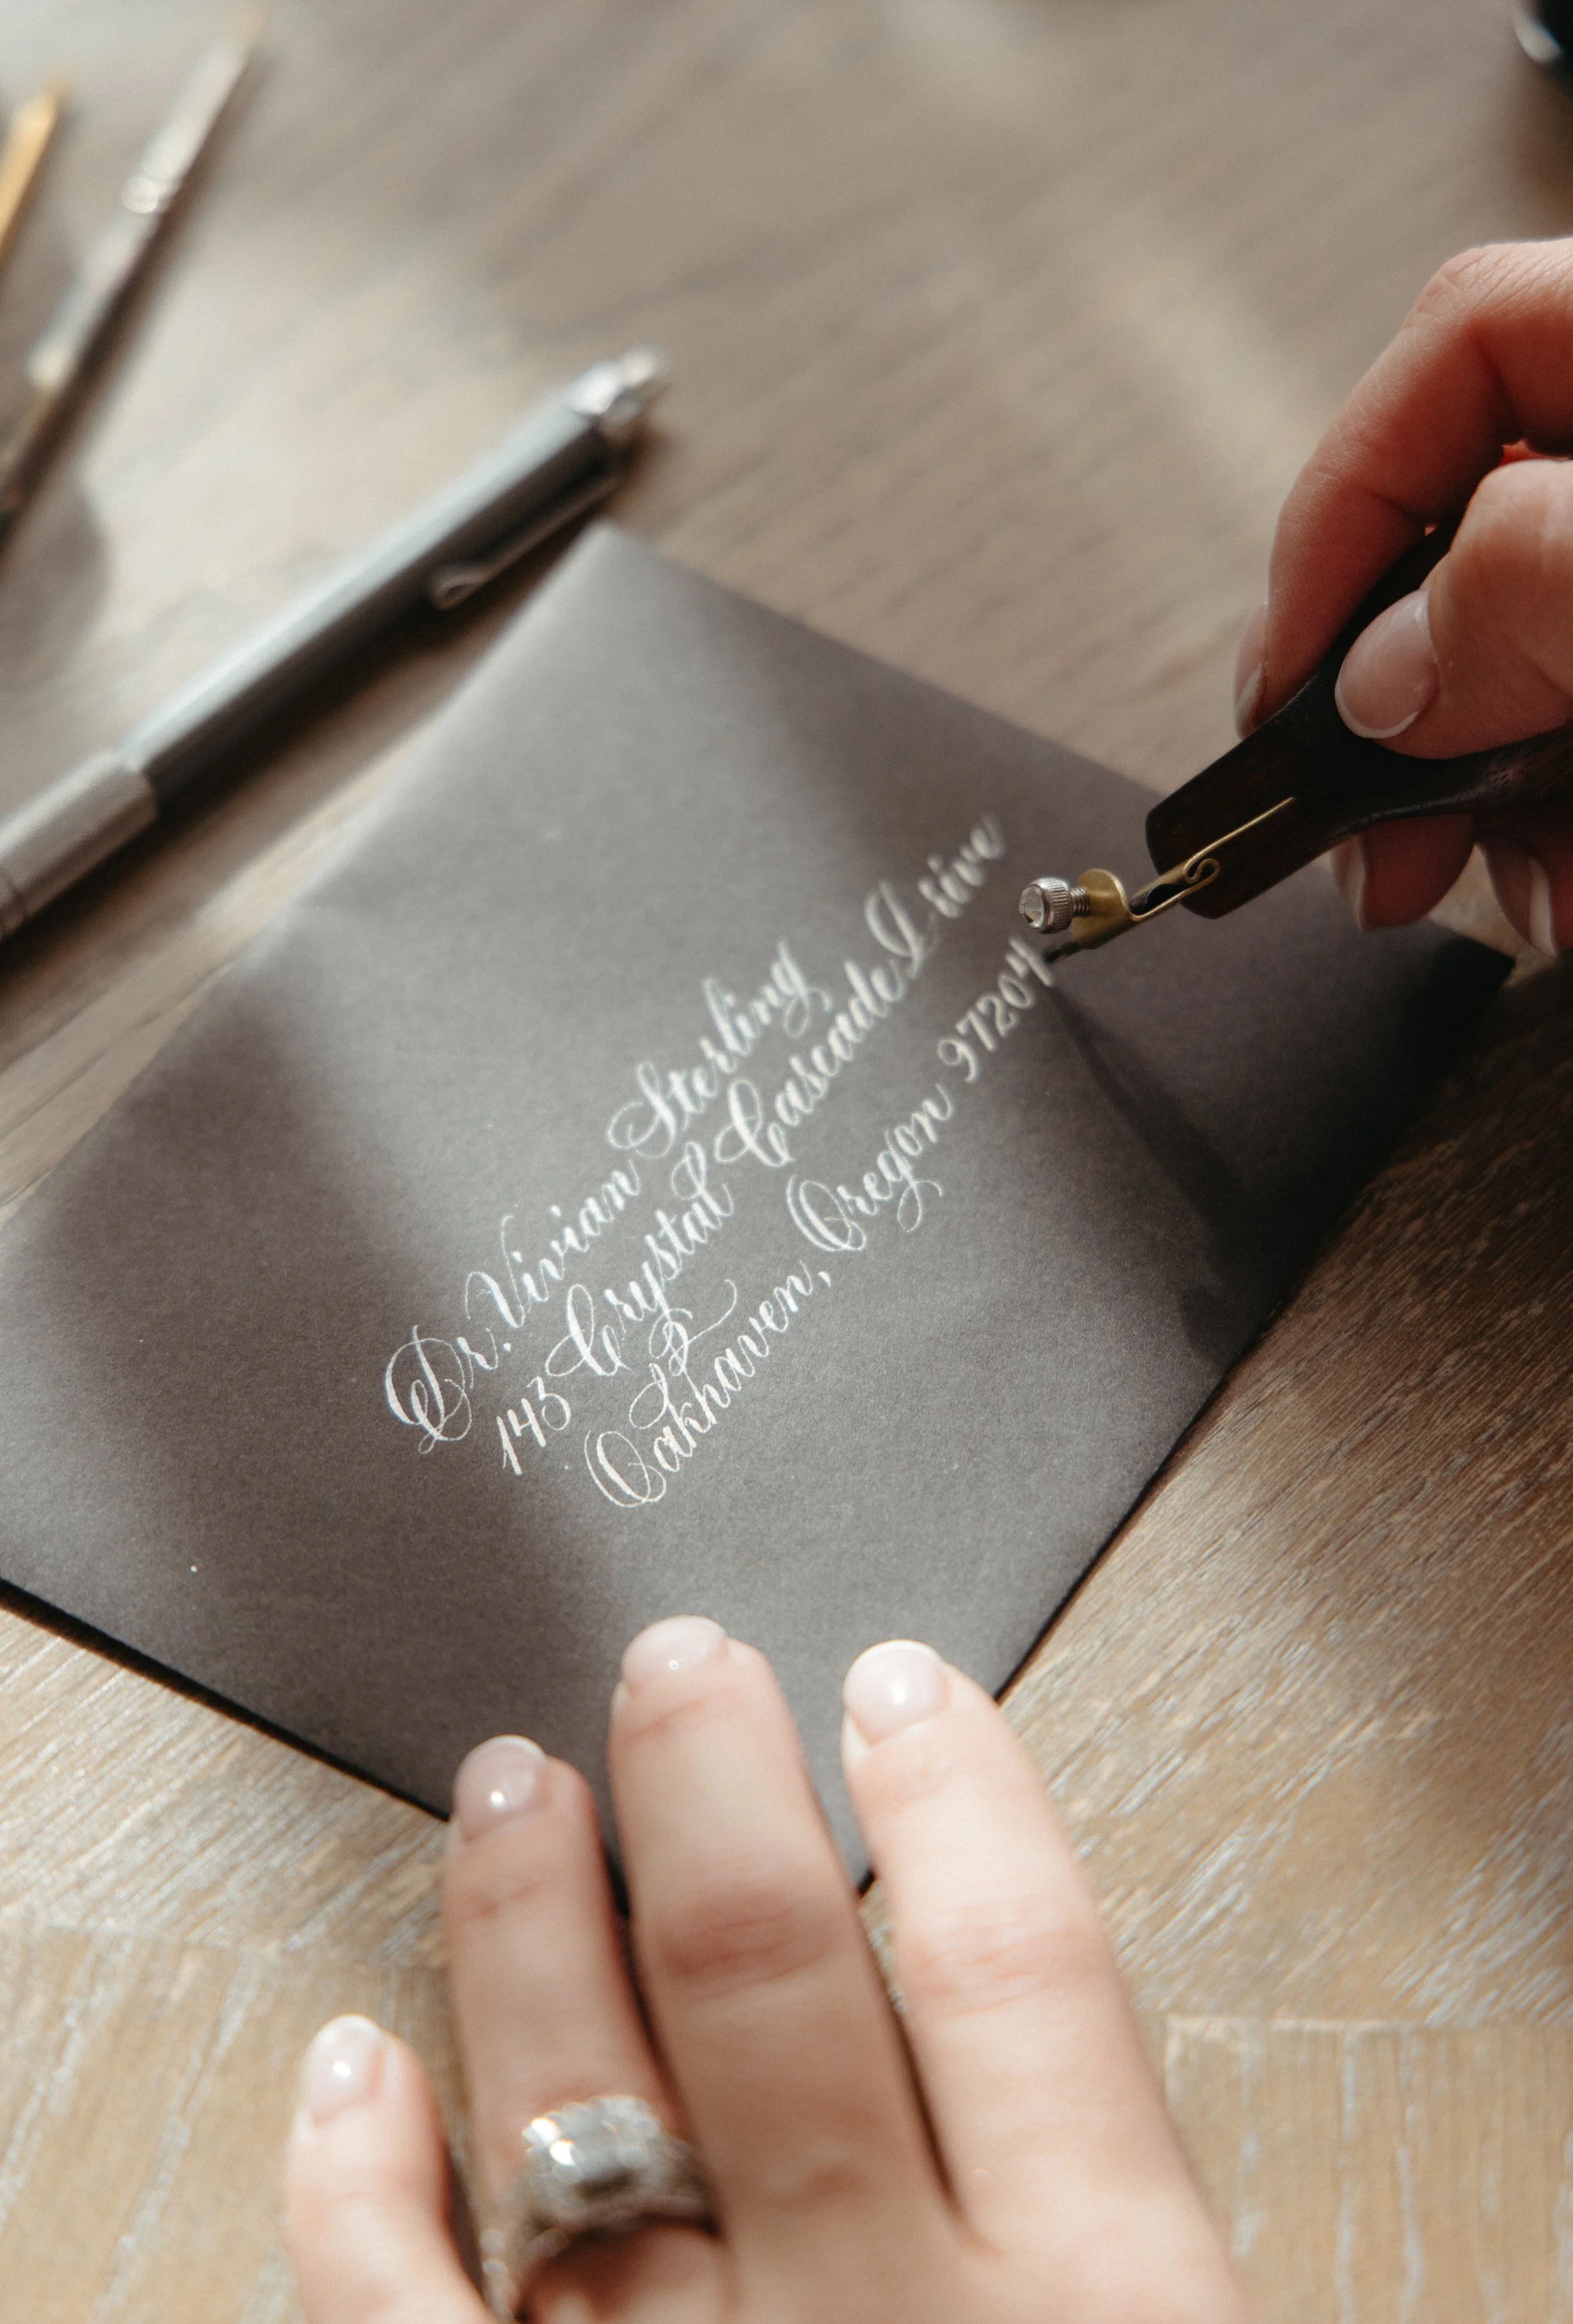 Dr. Vivian Sterling
143 Crystal Cascade Drive
Oakhaven, Oregon 97204